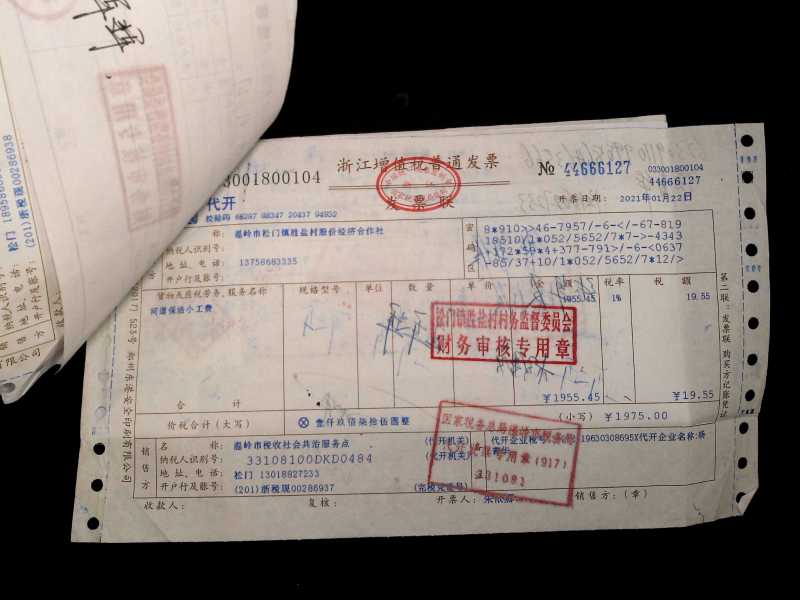 浙江增值税普通发票
发票联
033001800104
№ 44666127
033001800104
44666127
代开
开票日期： 2021年01月22日
校验码 66297 98347 20437 94952
称： 温岭市松门镇胜盐村股份经济合作社
纳税人识别号：
地 址、电 话： 13758683335
开户行及账号：
密
码
区
8*910>>46-7957/-6-</-67-819
18510/1*052/5652/7*7->-4343
-172*59*4+377-791>/-6-<0637
-85/37+10/1*052/5652/7*12/>
货物及应税劳务、服务名称
规格型号
单位
数 量
单 价
金 额
税率
税 额
河道保洁小工费
1955.45
1%
19.55
松门镇胜盐村村务监督委员会
财务审核专用章
合 计
¥1955.45
¥19.55
价税合计（大写）
⊗ 壹仟玖佰柒拾伍圆整
（小写） ¥1975.00
销
售
方
名 称： 温岭市税收社会共治服务点
纳税人识别号： 33108100DKD0484
地 址、电 话： 松门 13018827233
开户行及账号： (201)浙税现00286937
(代开机关)
(代开机关)
(完税凭证号)
代开企业税号:
19630308695X代开企业名称:杨
(917)
331081
收款人：
复核：
开票人：
销售方：（章）
第二联：发票联 购买方记账凭证
(201)浙税现00286938